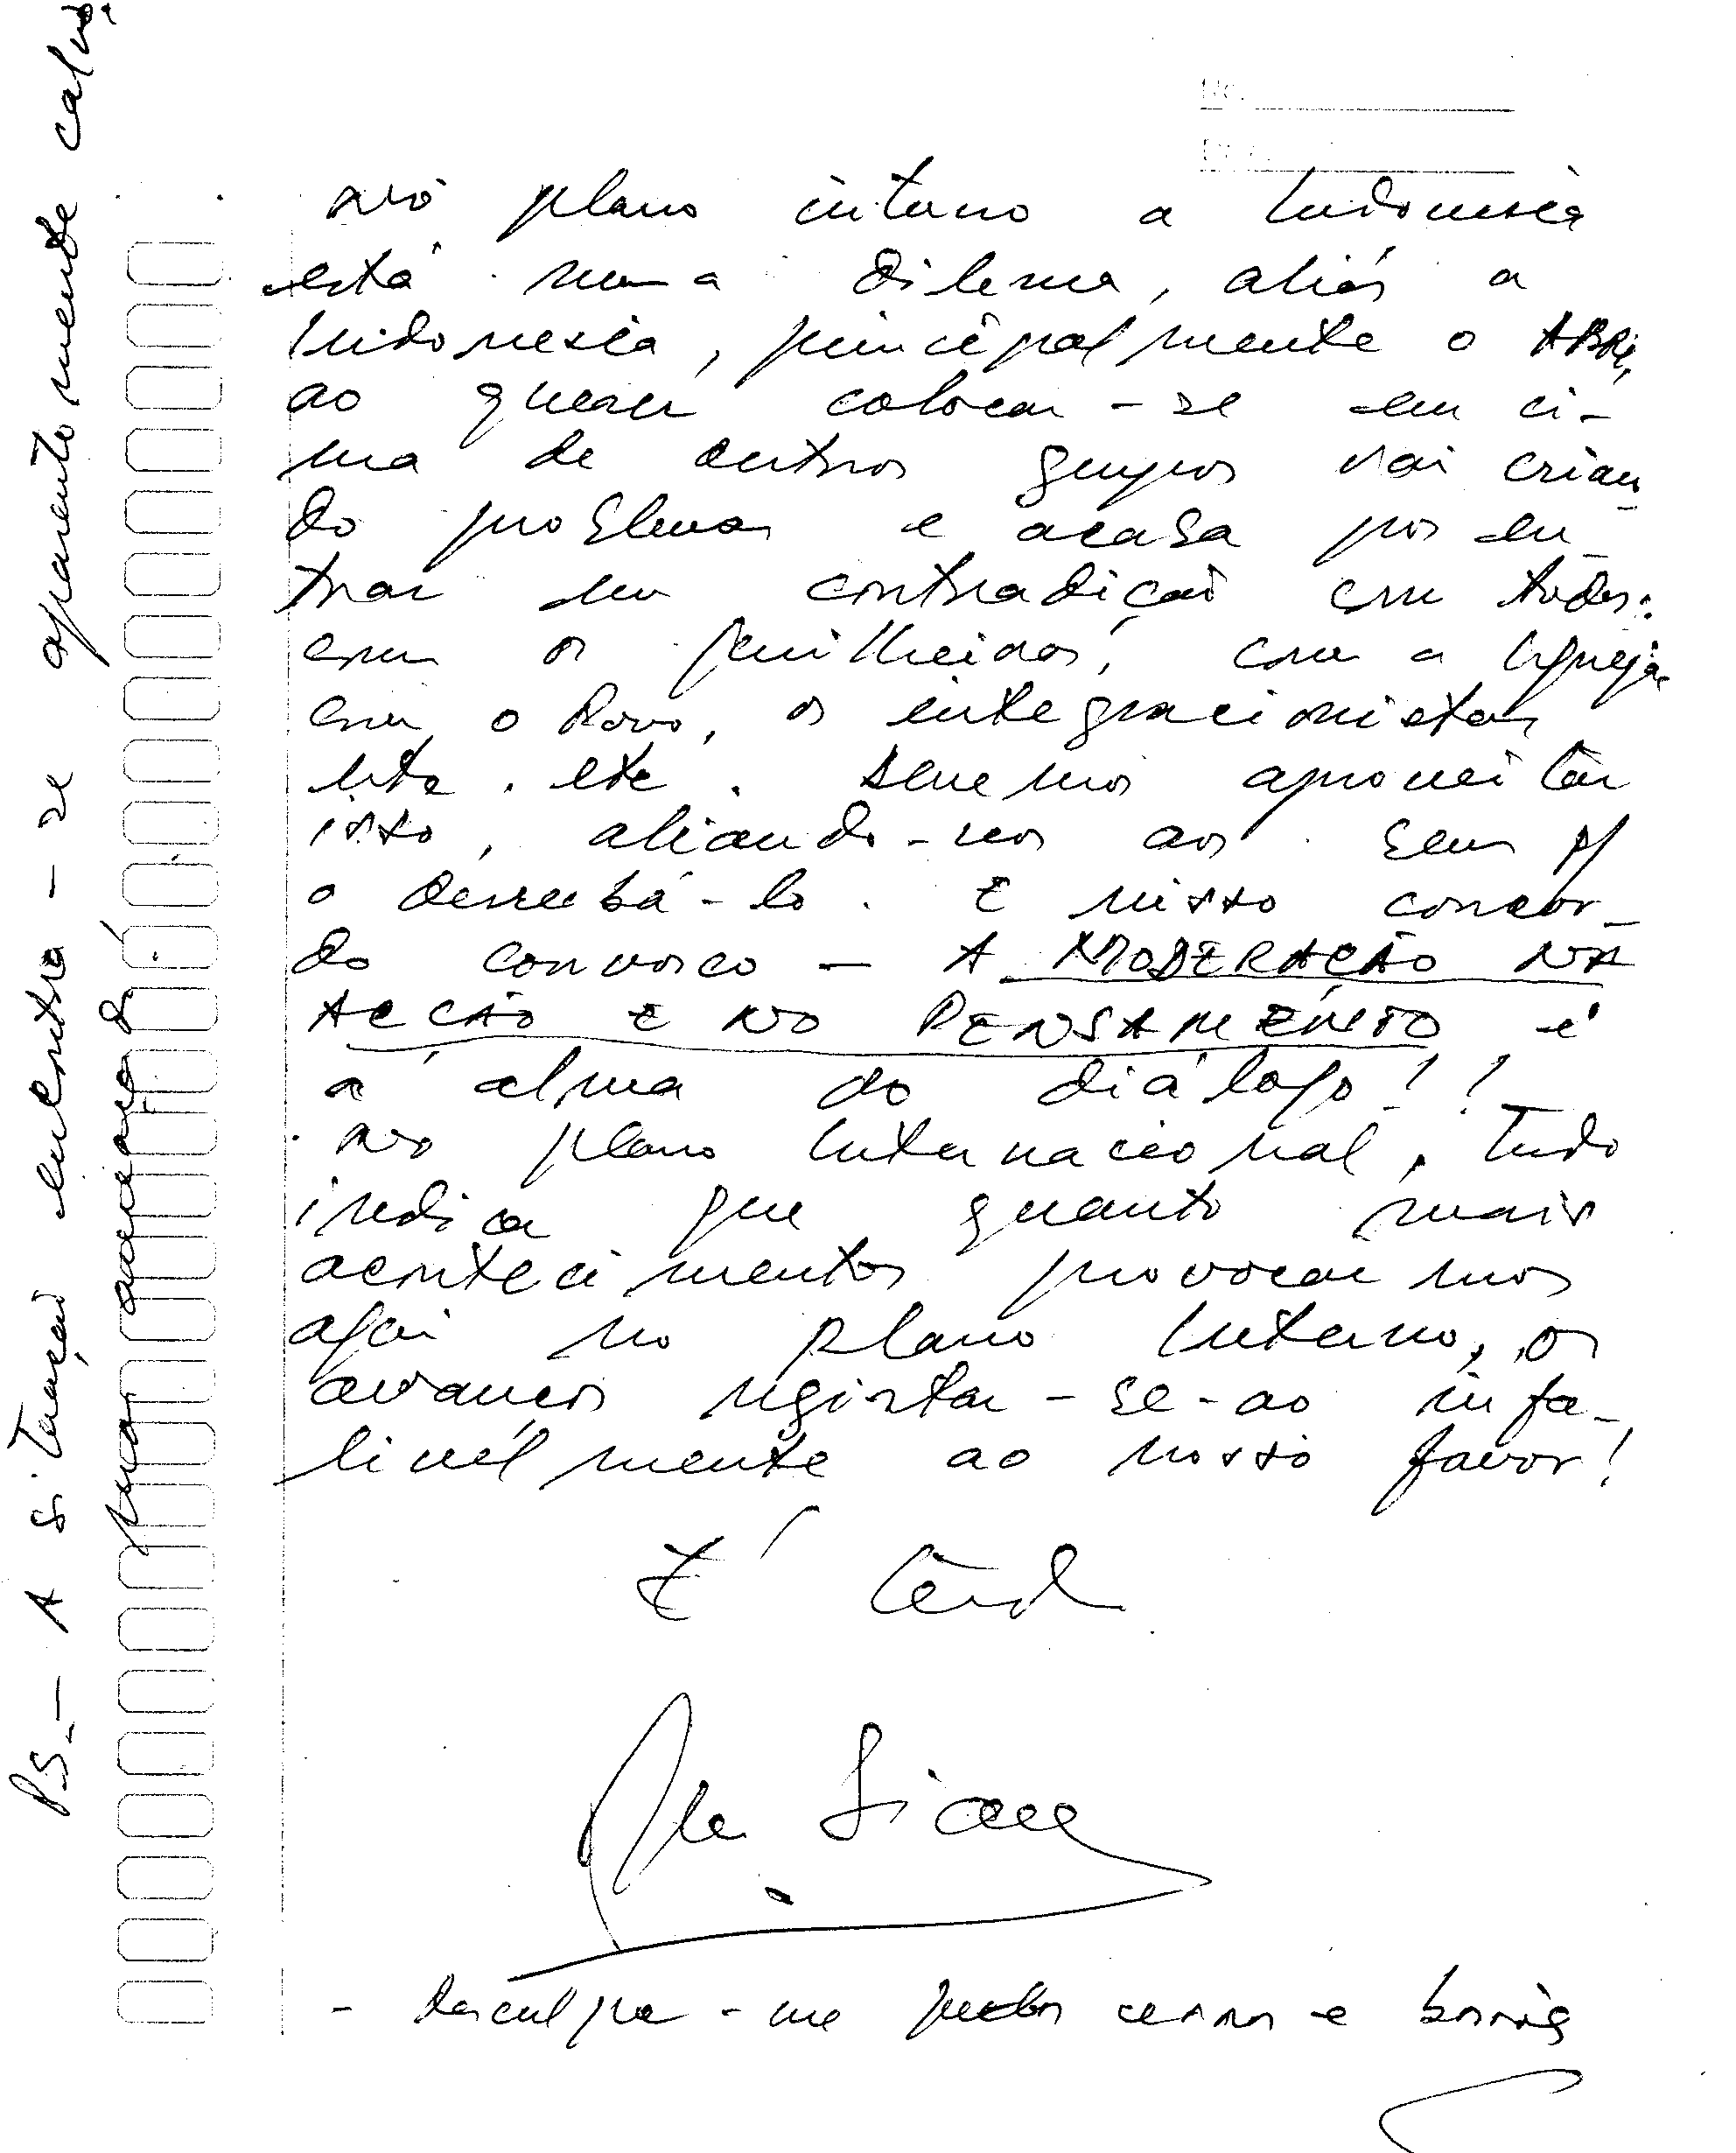 No plano interno a Indonesia
está numa dilema, aliás a
Indonesia, principalmente o ABRI,
ao querer colocar-se em ci-
ma de outros grupos vai crian-
do problemas e acaba por en-
trar em contradição com todos:
com os guilheiros, com a Igreja,
com o Povo, os integracionistas
etc. etc. Devemos aproveitar
isso, aliando-nos aos seus p/
o derrubá-lo. E nisso concor-
do convosco - A MODERAÇÃO NA
ACÇÃO E NO PENSAMENTO é
a alma do diálogo!!
No plano Internacional, tudo
indica que quanto mais
acontecimentos provocarmos
aqui no plano Interno, os
avanços registar-se-ao infa-
livélmente ao nosso favor!
É tard
- Desculpe-me pelos erros e
PS.- A situação encontra-se aparentemente calma